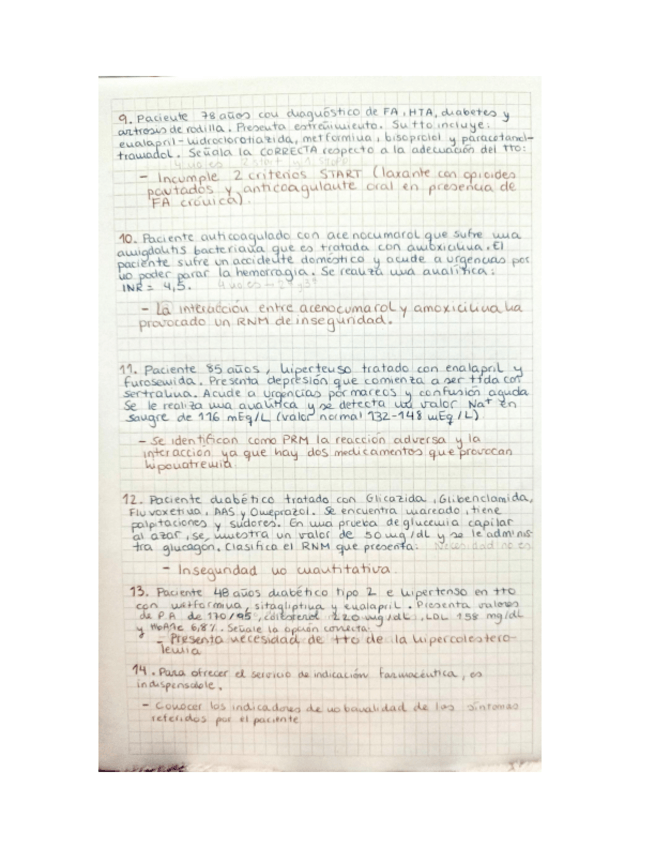 9. Paciente 78 años con diagnóstico de FA, HTA, diabetes y
artrosis de rodilla. Presenta estreñimiento. Su tto incluye:
enalapril-hidroclorotiazida, metformina, bisoprolol y paracetamol-
tramadol. Señala la CORRECTA respecto a la adecuación del tto:
- Incumple 2 criterios START (laxante con opioides
pautados y anticoagulante oral en presencia de
FA crónica)
10. Paciente anticoagulado con acenocumarol que sufre una
amigdalitis bacteriana que es tratada con amoxicilina. El
paciente sufre un accidente doméstico y acude a urgencias por
no poder parar la hemorragia. Se realiza una analítica:
INR = 4,5.
- La interacción entre acenocumarol y amoxicilina ha
provocado un RNM de inseguridad.
11. Paciente 85 años, hipertenso tratado con enalapril y
furosemida. Presenta depresión que comienza a ser ttda con
sertralina. Acude a urgencias por mareos y confusión aguda
Se le realiza una analítica y se detecta un valor Na+ en
sangre de 116 mEq/L (valor normal 132-148 mEq/L)
- Se identifican como PRM la reacción adversa y la
interacción ya que hay dos medicamentos que provocan
hiponatremia
12. Paciente diabético tratado con Glicazida, Glibenclamida,
Fluoxetina, AAS y Omeprazol. Se encuentra mareado, tiene
palpitaciones y sudores. En una prueba de glucemia capilar
al azar, se muestra un valor de 50 mg/dL y se le adminis-
tra glucagón. Clasifica el RNM que presenta:
- Inseguridad no cuantitativa.
13. Paciente 48 años diabético tipo 2 e hipertenso en tto
con metformina, sitagliptina y enalapril. Presenta valores
de P.A de 170/95, colesterol 220 mg/dL, LDL 158 mg/dl
y HbA1c 6,8%. Señale la opción correcta:
- Presenta necesidad de tto de la hipercolestero-
lemia
14. Para ofrecer el servicio de indicación farmacéutica, es
indispensable.
- Conocer los indicadores de no banalidad de los síntomas
referidos por el paciente